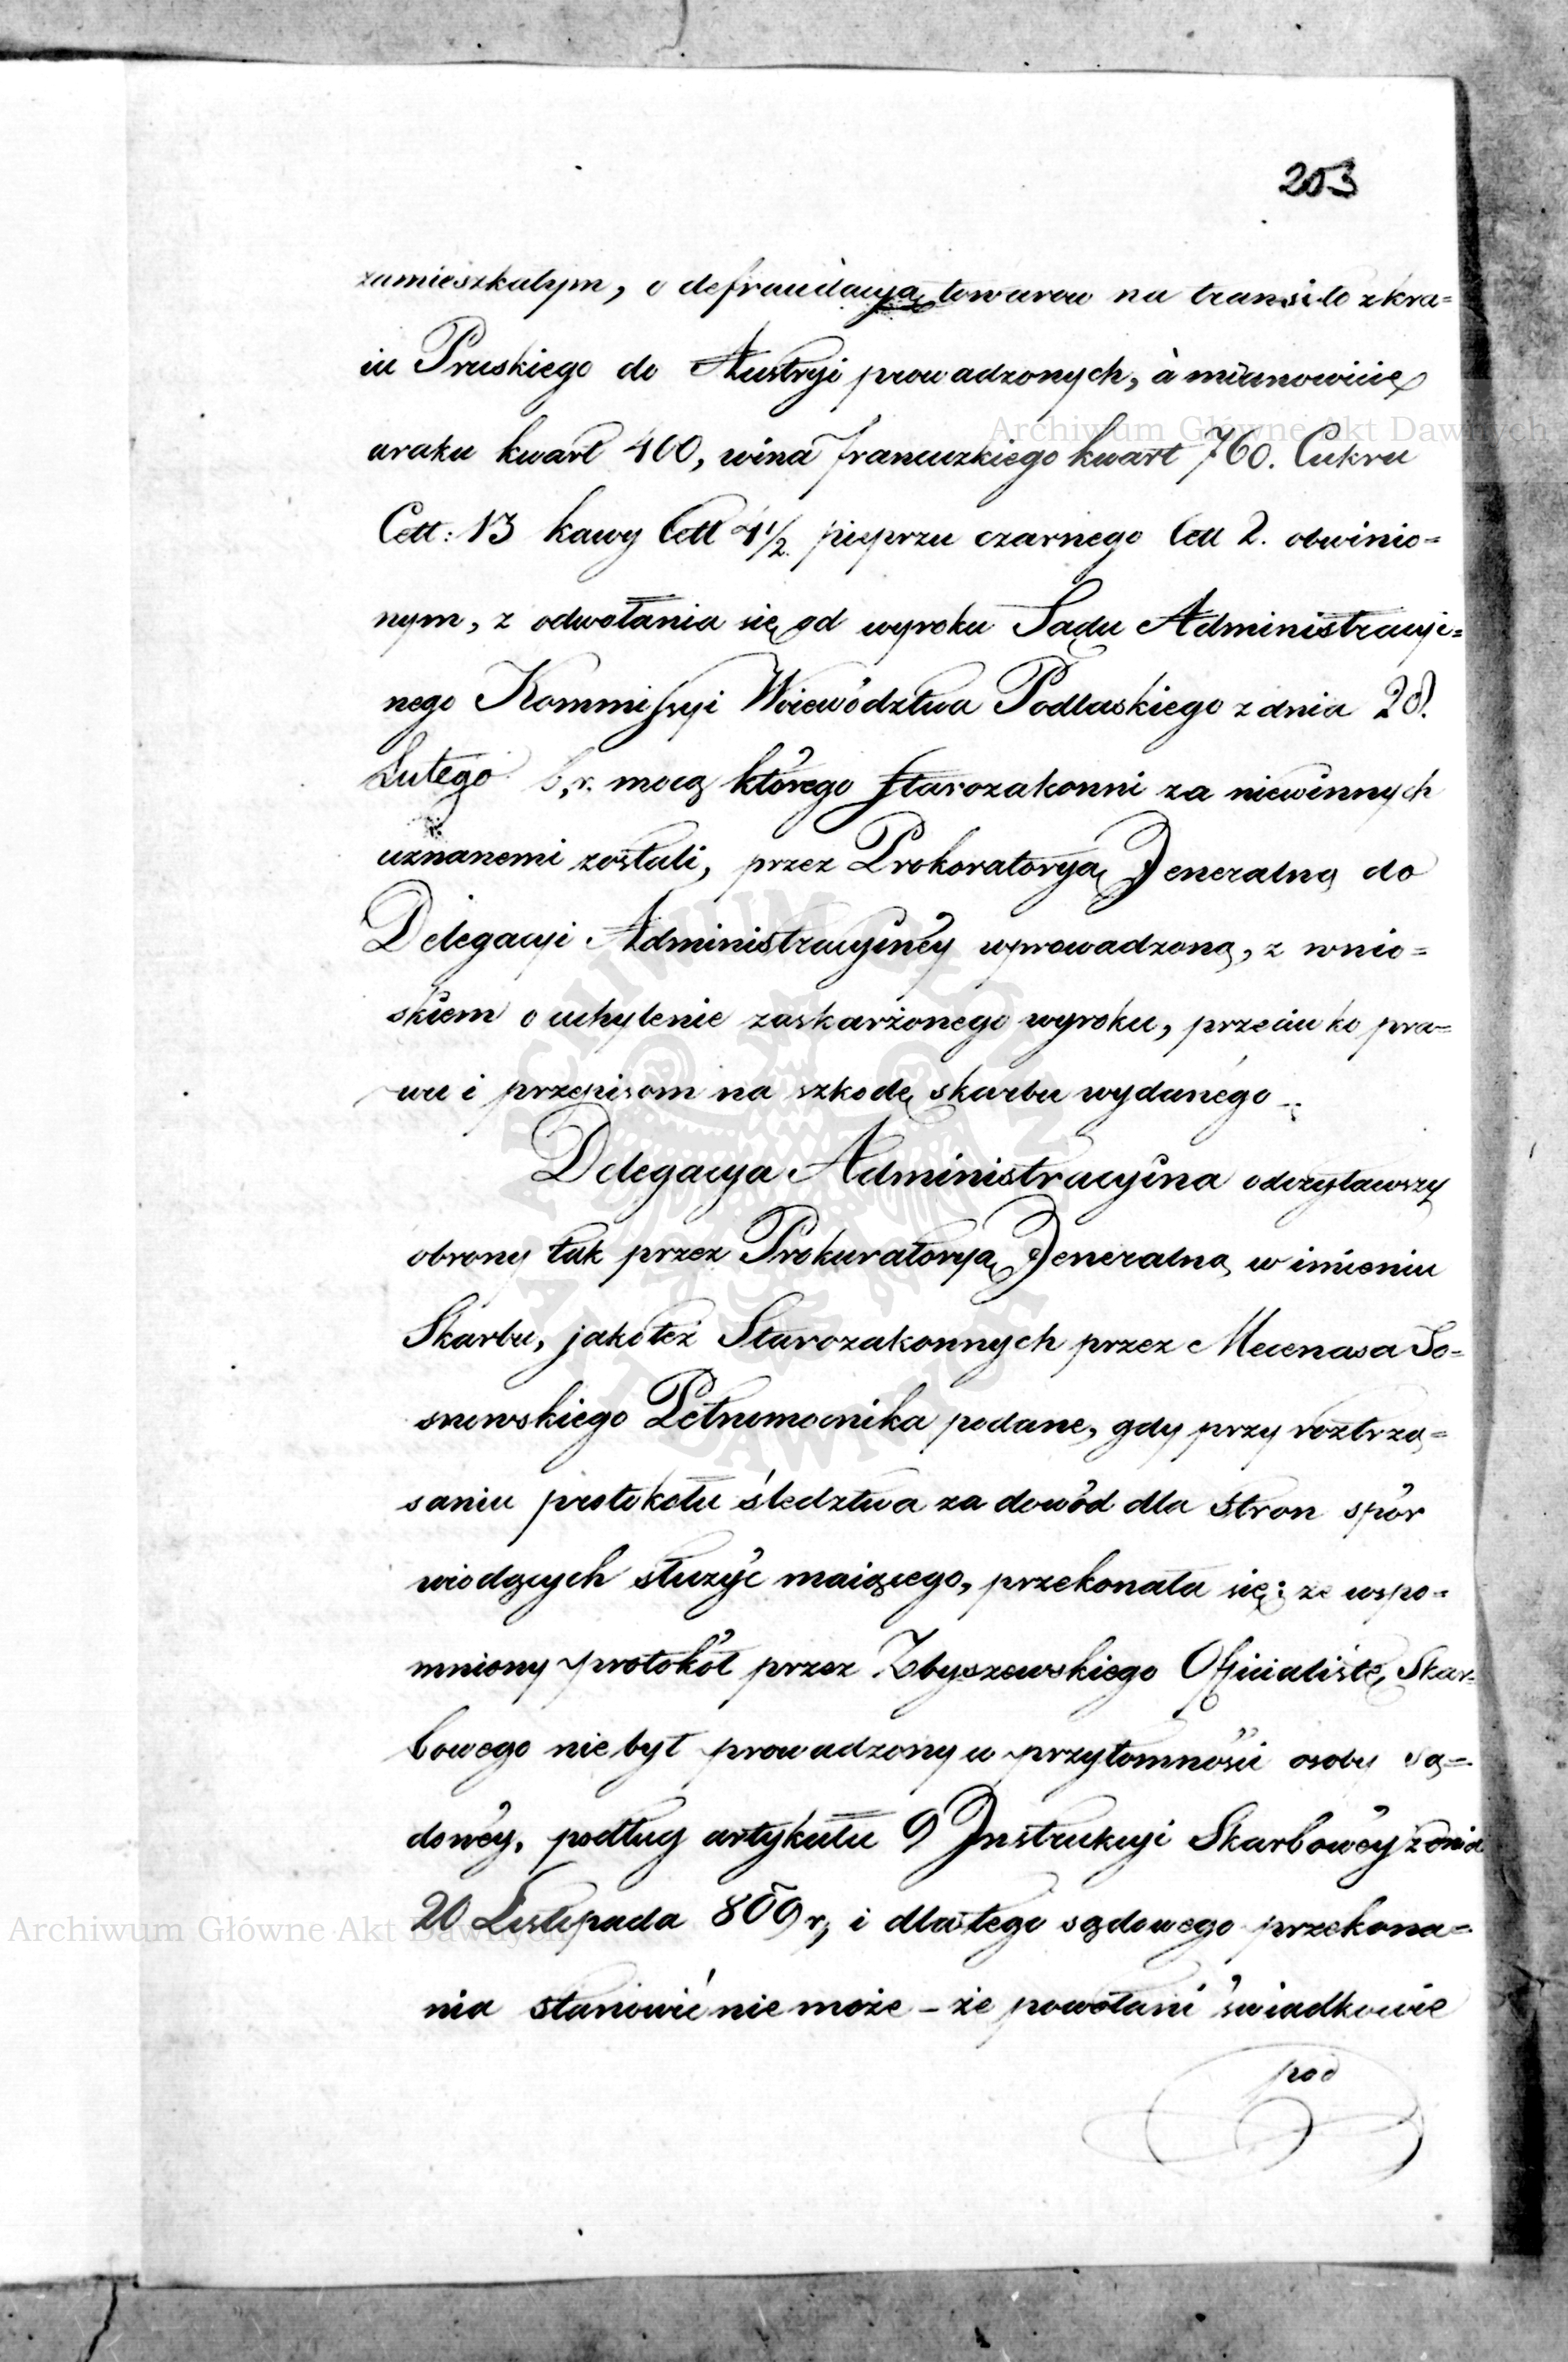 203
zamieszkałym, o defraudacyą towarow na transito z kra=
iu Pruskiego do Austryi prowadzonych, à mianowicie
araku kwart 400, wina francuzkiego kwart 760. Cukru
Cett: 13 kawy Cett 4 1/2. pieprzu czarnego Cett 2. obwinio=
nym, z odwołania się od wyroku Sądu Administracyi=
nego Kommissyi Woiewództwa Podlaskiego z dnia 28.
Lutego b, r. mocą którego starozakonni za niewinnych
uznanemi zostali, przez Prokoratoryą Jeneralną do
Delegacyi Administracyinéy wprowadzoną, z wnio=
skiem o uchylenie zaskarżonego wyroku, przeciwko pra=
wu i przepisom na szkodę skarbu wydanégo.
Delegacya Administracyina odczytawszy
obrony tak przez Prokuratoryą Jeneralną w imieniu
Skarbu, jako też Starozakonnych przez Mecenasa So=
snowskiego Pełnomocnika podane, gdy przy roztrzą=
saniu protokołu śledztwa za dowód dla stron spór
wiodących służyć maiącego, przekonała się: że wspo=
mniony protokół przez Zbyszewskiego Officialistę Skar=
bowego nie był prowadzony w przytomności osoby są=
dowéy, podług artykułu 9 Jnstrukcyi Skarbowéy z dnia
20 Listopada 809 r, i dla tego sądowego przekona=
nia stanowić nie może – że powołani świadkowie
pod
Archiwum Główne Akt Dawnych
Archiwum Główne Akt Dawnych